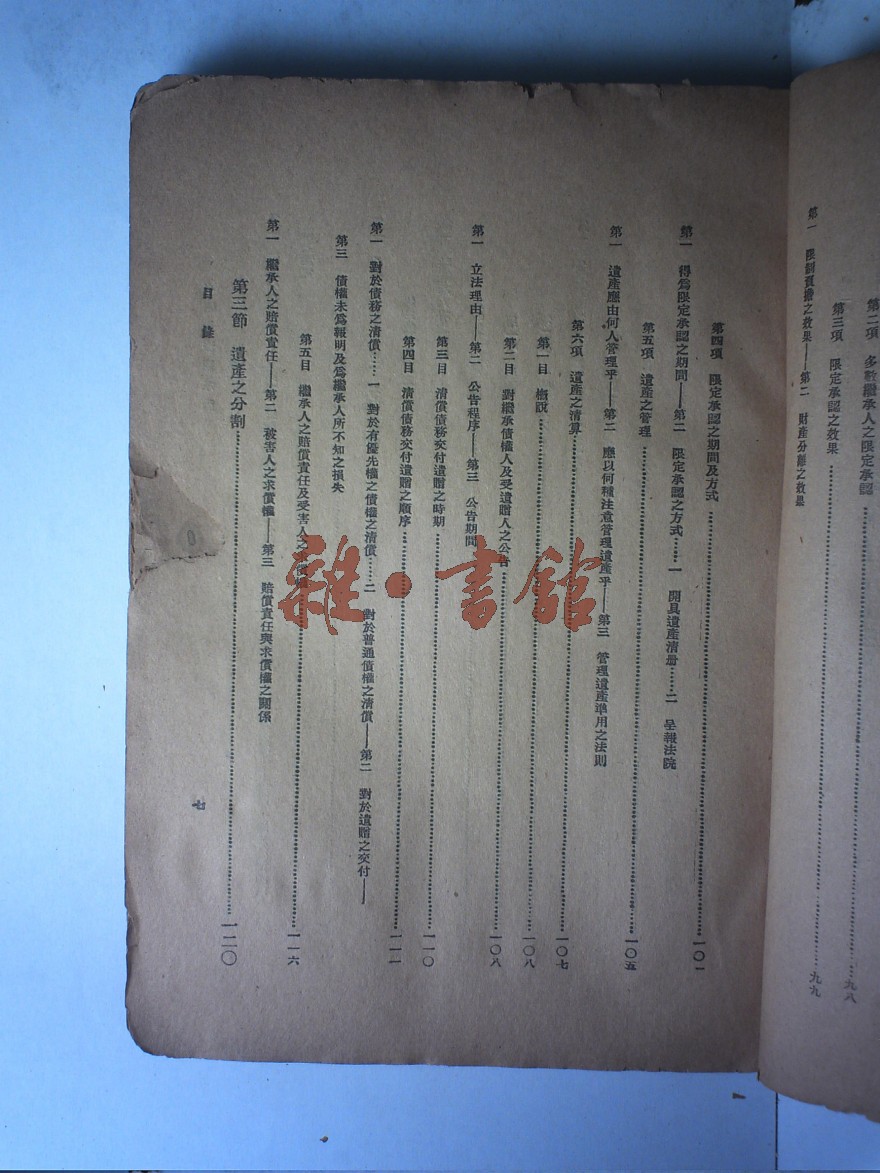 第二項　多數繼承人之限定承認……九八
第三項　限定承認之效果……九九
第一　限制責擔之效果——第二　財產分離之效果
第四項　限定承認之期間及方式……一〇一
第一　得爲限定承認之期間——第二　限定承認之方式……一　開具遺產清册……二　呈報法院
第五項　遺產之管理……一〇五
第一　遺產應由何人管理乎——第二　應以何種注意管理遺產乎——第三　管理遺產準用之法則
第六項　遺產之清算……一〇七
第一目　概說……一〇八
第二目　對繼承債權人及受遺贈人之公告……一〇八
第一　立法理由——第二　公告程序——第三　公告期間
第三目　清償債務交付遺贈之時期……一一〇
第四目　清償債務交付遺贈之順序……一一一
第一　對於債務之清償……一　對於有優先權之債權之清償……二　對於普通債權之清償——第二　對於遺贈之交付——
第三　債權未爲報明及爲繼承人所不知之損失
第五目　繼承人之賠償責任及受害人之……一一六
第一　繼承人之賠償責任——第二　被害人之求償權——第三　賠償責任與求償權之關係
第三節　遺產之分割……一二〇
目錄
七
雜·書館